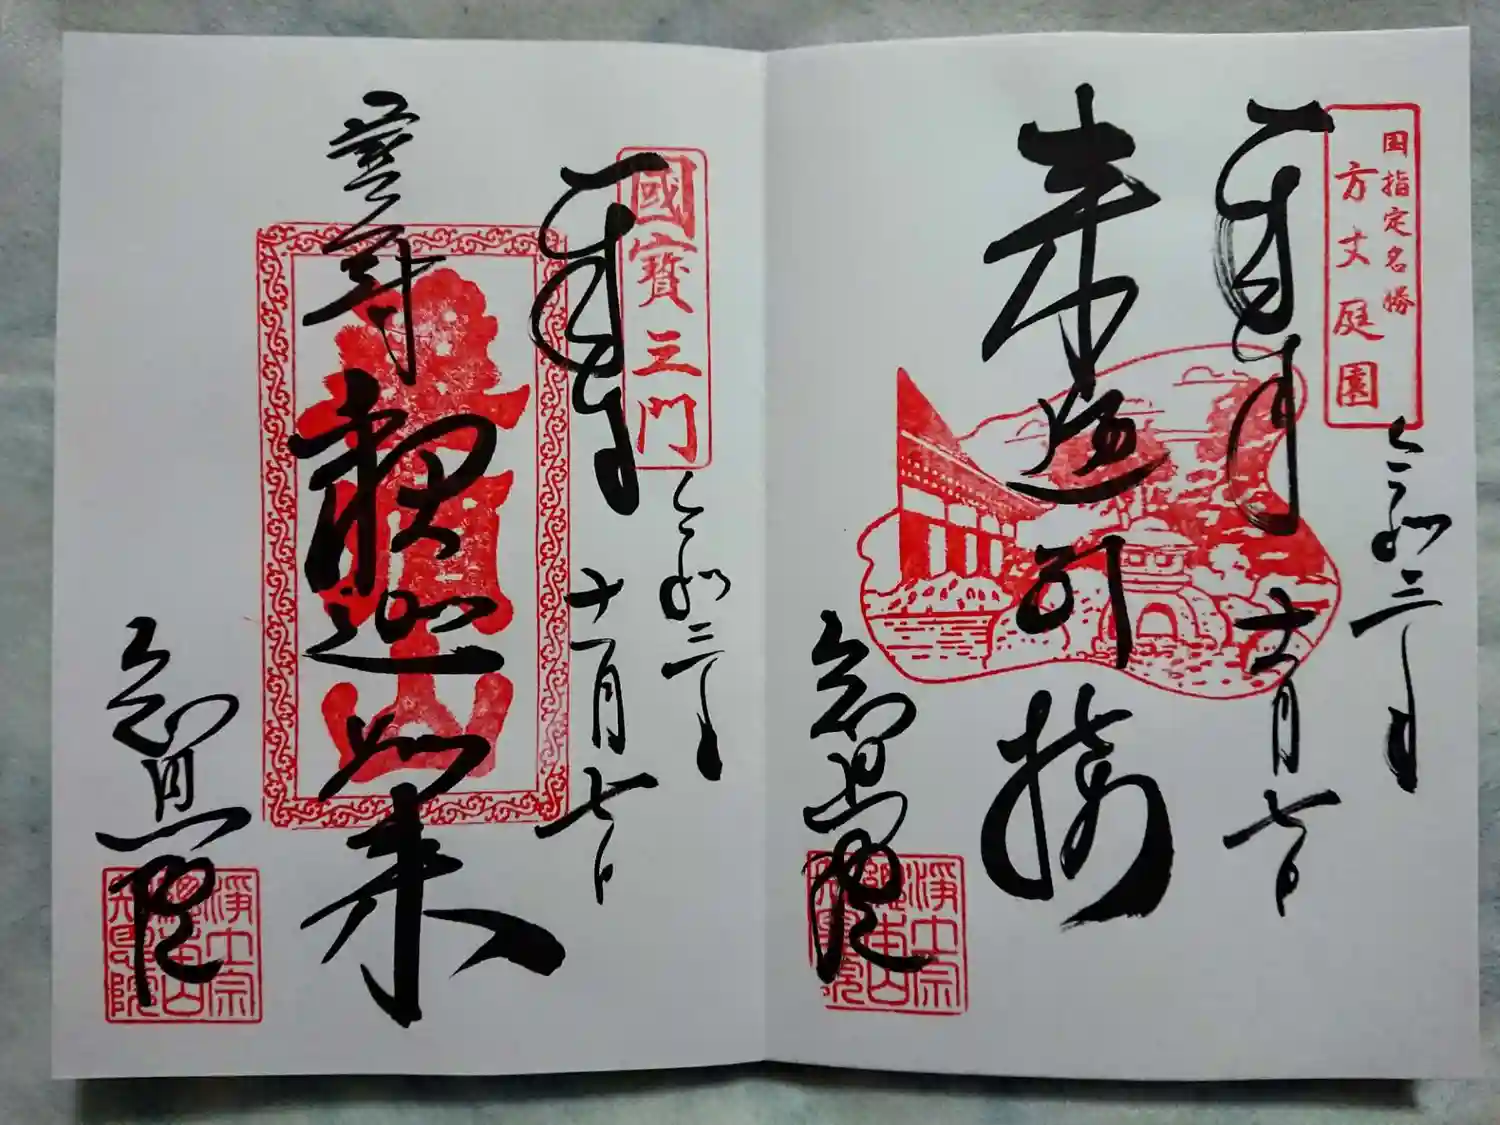 国指定名勝
方丈庭園
令和三年
奉拝
十一月七日
来迎引接
知恩院
淨土宗
總本山
知恩院
國寶三門
令和三年
奉拝
十一月七日
華頂山
釈迦如来
知恩院
淨土宗
總本山
知恩院